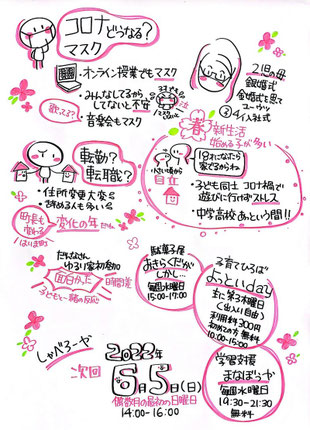 コロナどうなる？
マスク
オンライン授業でもマスク
・みんなしてるから
してないと不安
歌える？
音楽会もマスク
2児の母
銀婚式
金婚式を思て
④4イ人社式
春
新生活
始める子が多い
転勤？
転職？
・住所変更大変
・辞める人も多い
変化の年だね
18才になったら
家でるからね
小さい頃から
自立
・子ども同士コロナ禍で
遊びに行けずストレス
・中学高校あっという間!!
だんなさん
ゆるり家初参加
面白かった
子どもと一緒の反応
駄菓子屋
おきらくだがしかし…
毎週水曜日
15:00-17:00
子育てひろば
よっといday
主に第3木曜日
（出入り自由）
利用料300円
初めての方無料
10:00-15:00
学習支援
まなぼうや
毎週水曜日
19:30-21:30
無料
しゃべろーや
次回
2022年
6月5日(日)
偶数月の最初の日曜日
14:00-16:00